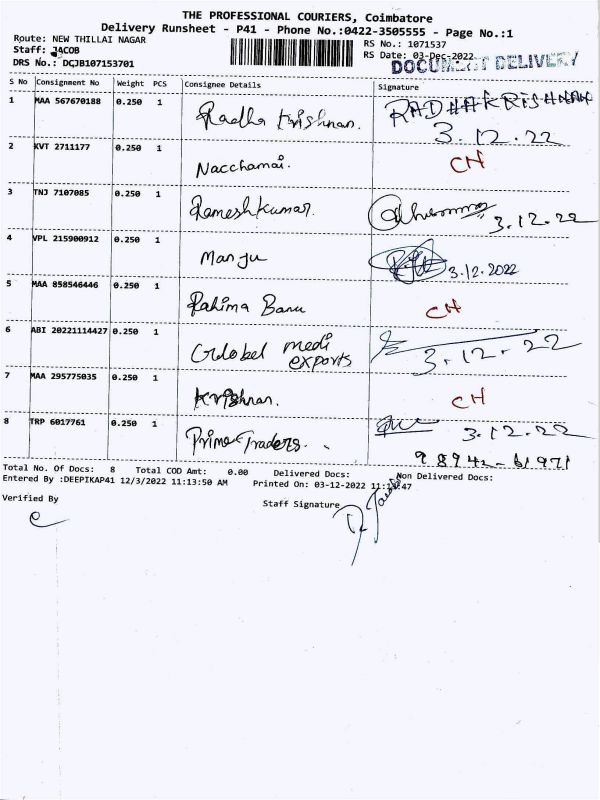 THE PROFESSIONAL COURIERS, Coimbatore
Delivery Runsheet - P41 - Phone No.:0422-3505555 - Page No.:1
Route: NEW THILLAI NAGAR RS No.: 1071537
Staff: JACOB RS Date: 03-Dec-2022
DRS No.: DCJB107153701 DOCUMENT DELIVERY
S No Consignment No Weight PCS Consignee Details Signature
1 MAA 567670188 0.250 1 Radha Krishnan. RADHAKRISHNAN
3.12.22
2 KVT 2711177 0.250 1 Nacchamai. CH
3 TNJ 7107085 0.250 1 Rameshkumar. 3.12.22
4 VPL 215900912 0.250 1 Manju 3.12.2022
5 MAA 858546446 0.250 1 Rahima Banu CH
6 ABI 20221114427 0.250 1 Globel medi exports 3.12.22
7 MAA 295775035 0.250 1 Krishnan. CH
8 TRP 6017761 0.250 1 Prime Traders. 3.12.22
98942-61971
Total No. Of Docs: 8 Total COD Amt: 0.00 Delivered Docs: Non Delivered Docs:
Entered By :DEEPIKAP41 12/3/2022 11:13:50 AM Printed On: 03-12-2022
Verified By Staff Signature